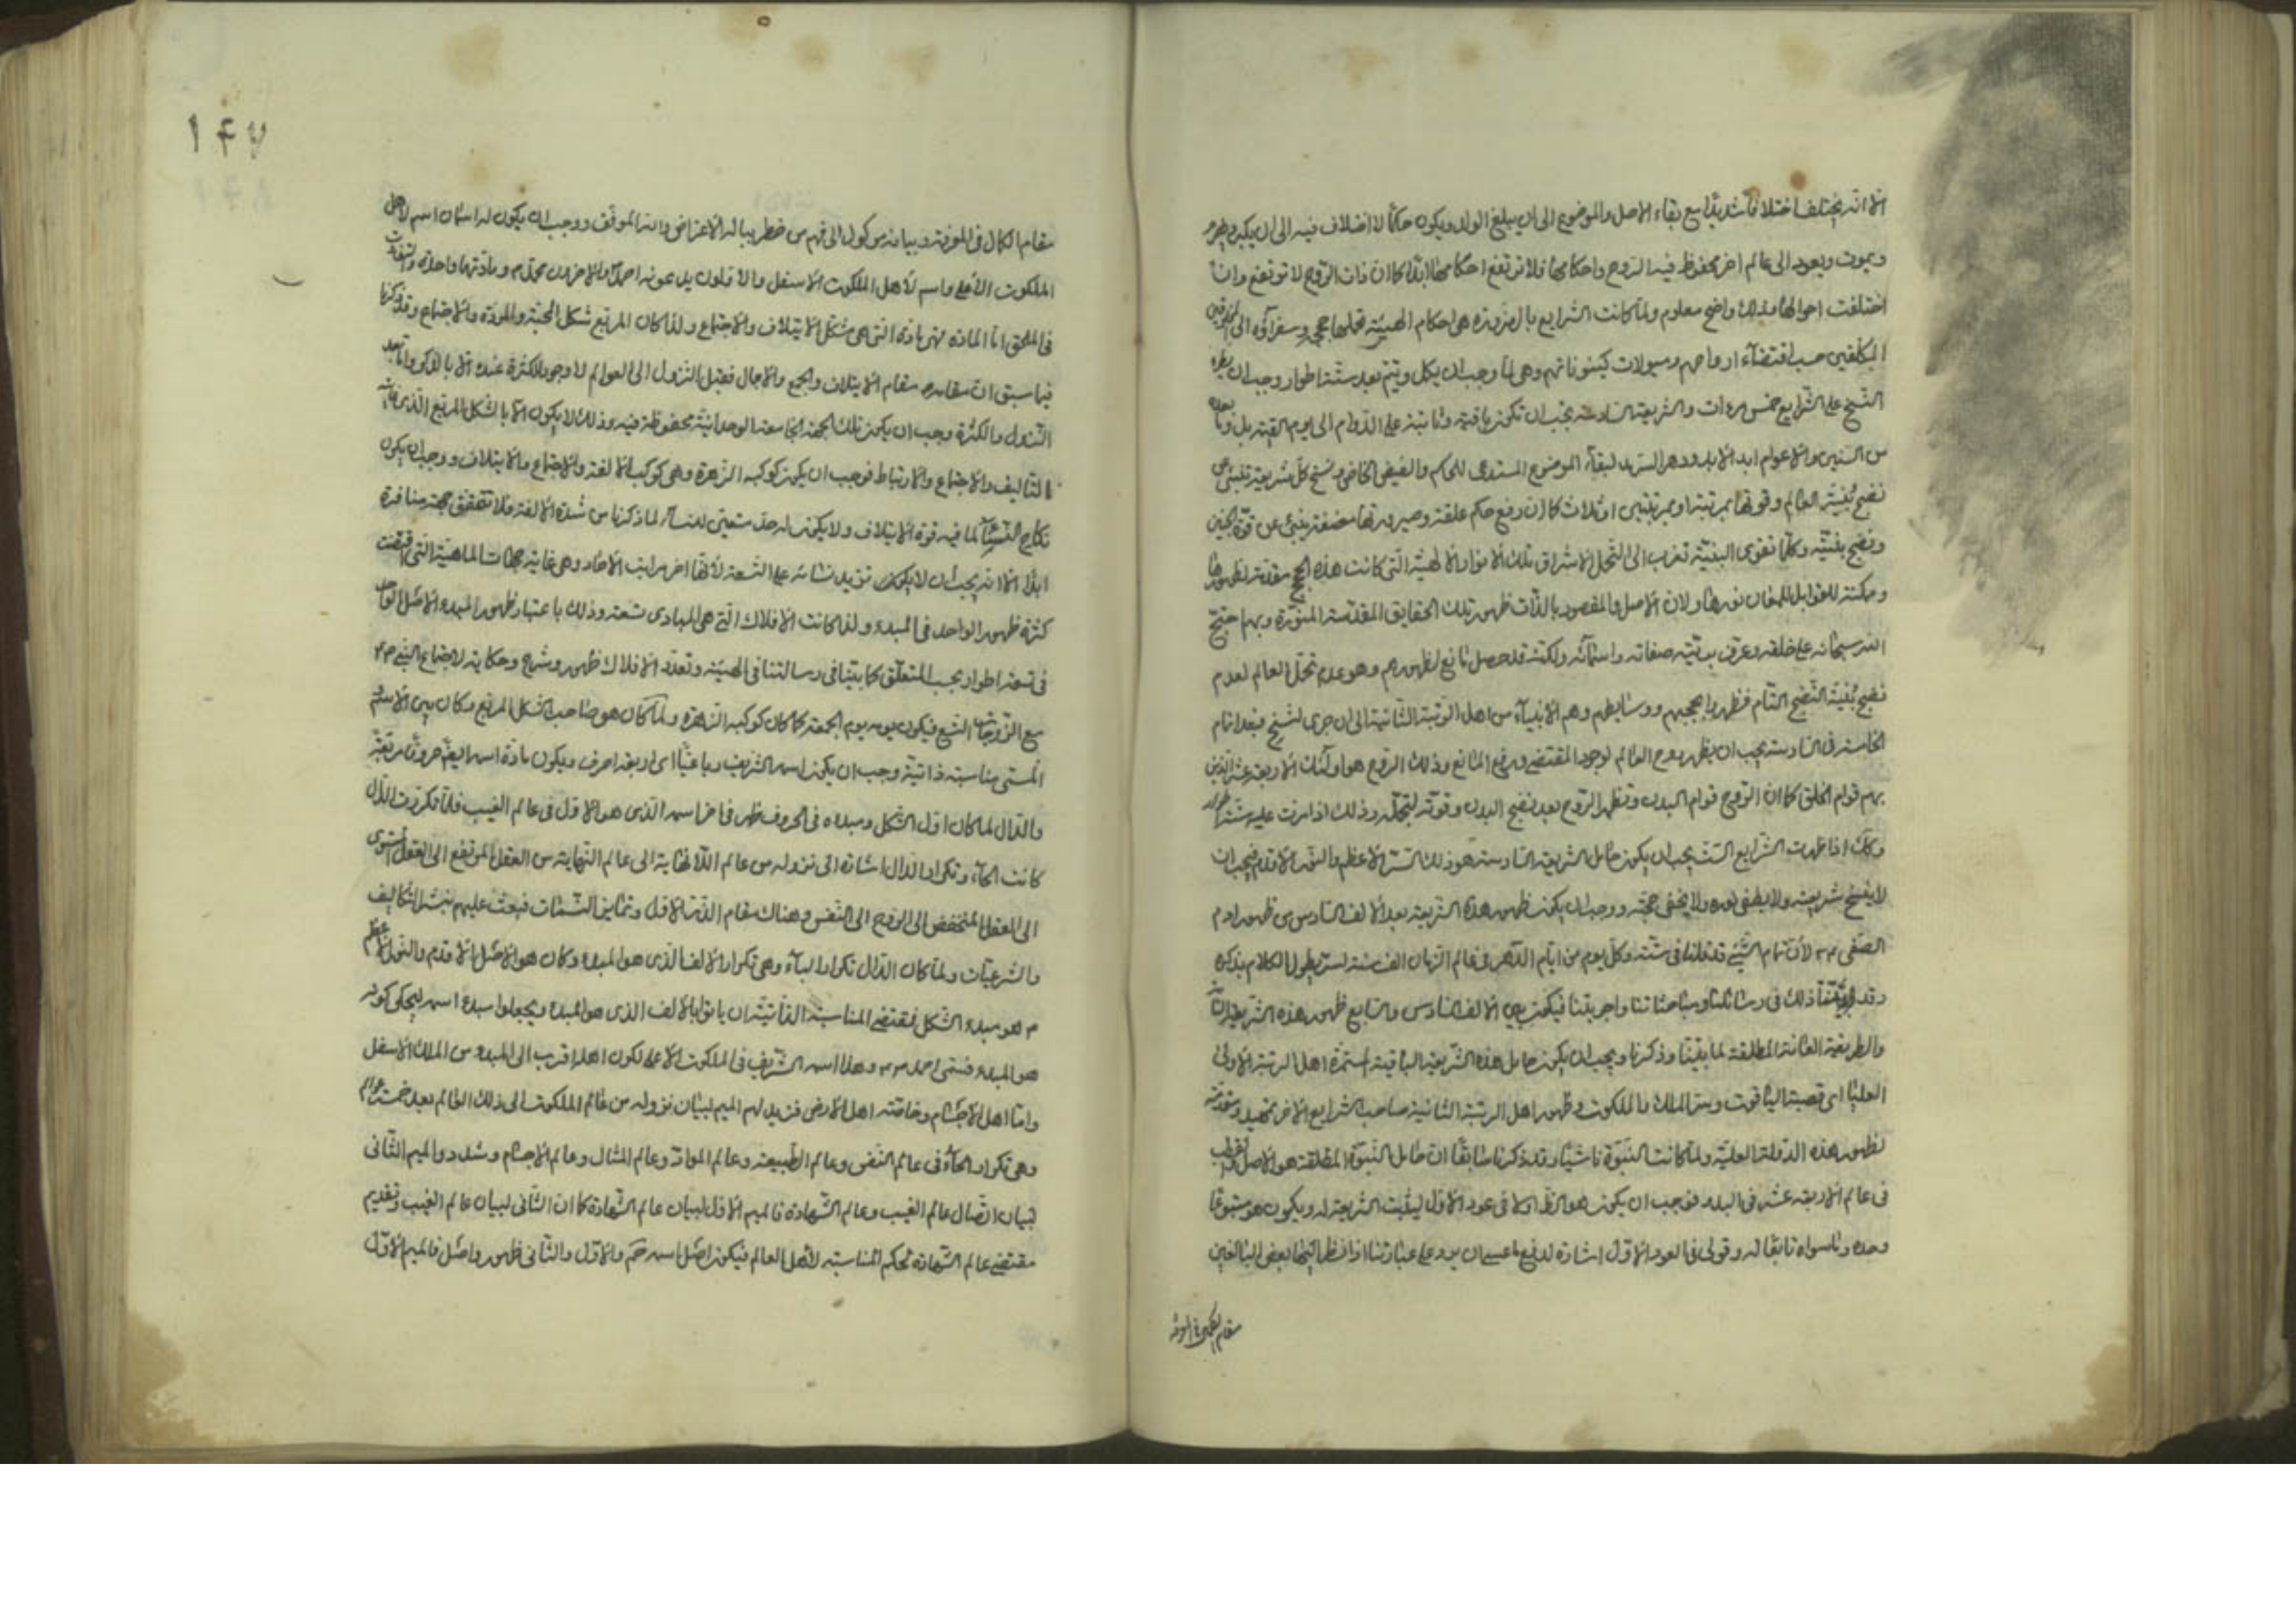 الا انه يختلف اختلافا شديدا مع بقاء الاصل والموضوع الى ان يبلغ الولد ويكون حكما لا اختلاف فيه الى ان يكبر ويهرم
ويموت ويعود الى عالم اخر محفوظ فيه الروح واحكامها فلا ترتفع احكامها ابدا كما ان ذات الروح لا ترتفع وان
اختلفت احوالها وذلك واضح معلوم ولما كانت الشرايع بالضرورة هي احكام الهيئة تحملها حجج وسفرآؤه الى
المكلفين حسب اقتضآء ارواحهم وميولات كينوناتهم وهي لما وجب ان يكمل ويتم بعد ستة اطوار وجب ان يطرء
النسخ على الشرايع خمس مرات والشريعة السادسة يجب ان تكون باقية وثابتة على الدوام الى يوم القيمة بل وما بعده
من السنين والاعوام ابد الابد ودهر السرمد لبقآء الموضوع المستدعى للحكم والفيض الخاص ونسخ كل شريعة تنبئ عن
نضج بنية العالم وقوتها بمرتبة او بمرتبتين او ثلاث كما ان رفع حكم علقة وصيرورتها مضغة ينبئ عن قوة الجنين
ونضج بنيته وكلما تقوى البنية تقرب الى التحمل لاشراق تلك الانوار الالهية التي كانت هذه الحجج مقدمة لظهورها
ومكنة للقوابل للمعان نورها ولان الاصل والمقصود بالذات ظهور تلك الحقايق المقدسة المنورة وبهم احتج
الله سبحانه على خلقه وعرف بريته صفاته واسمائه ولكنه قد حصل مانع لظهورهم وهو عدم تحمل العالم لعدم
نضج بنية النضج التام فظهر باحججهم ووسايطهم وهم الانبيآء من اهل الرتبة الثانية الى ان جرى النسخ فبعد اتمام
الخامسة في السادسة يجب ان يظهر روح العالم لوجود المقتضي ورفع المانع وذلك الروح هو اولئك الاربعة عشر الذين
بهم قوام الخلق كما ان الروح قوام البدن وتظهر الروح بعد نضج البدن وقوته لتحمله وذلك اذا مرت عليه ستة اطوار
وكك اذا ظهرت الشرايع الستة يجب ان يكون حامل الشريعة السادسة هو ذلك السر الاعظم والنور الاقدم فيجب ان
لا ينسخ شريعته ولا يطفى نوره ولا يخفى حجته ووجب ان يكون ظهور هذه الشريعة بعد الالف السادس من ظهور ادم
الصفى ع م لان تمام الشئ قد قلنا في ستة وكل يوم من ايام الدهر في عالم الزمان الف سنة لسر يطول الكلام بذكره
وقد ذلك في رسائلنا ومباحثاتنا واجوبتنا فيكون بين الالف السادس والسابع ظهور هذه الشريعة
والطريقة العامة المطلقة لما بينا وذكرنا ويجب ان يكون حامل هذه الشريعة الباقية المستمرة اهل الرتبة الاولى
العليا اى قصبة الياقوت وسر الملك والملكوت وظهور اهل الرتبة الثانية صاحب الشرايع الاخر تمهيد ومقدمة
لظهور هذه الدولة العلية ولما كانت النبوة وقد ذكرنا سابقا ان حامل النبوة المطلقة هو الاصل والقطب
في عالم الاربعة عشر في البدء فوجب ان يكون هو الظاهر اولا في عود الاول ليثبت الشريعة له ويكون هو متبوعا
وحده وما سواه تابعا له وقولى في العود الاول اشارة لدفع ما عسى ان يرد على عبارتنا اذا نظر اليها بعض البالغين
مقام الكمال في المعرفة
١٤٧
مقام الكمال في المعرفة وبيانه موكول الى فهم من خطر بباله الاعتراض والله الموفق ووجب ان يكون له اسمان اسم لاهل
الملكوت الاعلى واسم لاهل الملكوت الاسفل والاولون يدعونه احمد والاخرون محمد م ومادتهما واحدة والتفاوت
في الملحق اما المادة فهي مادة التي هي مشكل الايتلاف والاجتماع ولذا كان المربع شكل المحبة والمودة والاجتماع وقد ذكرنا
فيما سبق ان مقامه مقام الايتلاف والجمع والاجمال فقبل النزول الى العوالم لا وجود للكثرة عنده الا بالذكر واما بعد
التنزل والكثرة وجب ان يكون تلك الجهة الجامعة الوحدانية محفوظة فيه وذلك لا يكون الا بالشكل المربع الذي
التاليف والاجتماع والارتباط فوجب ان يكون كوكبه الزهرة وهي كوكب الالفة والاجتماع والايتلاف ووجب ان يكون
نكاح النساء لما فيه قوة الايتلاف ولا يكون له حد متعين للنساء لما ذكرنا من شدة الالفة فلا تتحقق جهة منافرة
ابدا الا انه يجب ان لا يكون تزيد نسائه على التسعة لانها اخر مراتب الاحاد وهي غاية جهات الماهية التي اقتضت
كثرة ظهور الواحد في المبدء ولذا كانت الافلاك التي هي المبادى تسعة وذلك باعتبار ظهور المبدء الاصل الواحد
في تسعة اطوار بحسب المتعلق كما بينا في رسالتنا في الهيئة وتعدد الافلاك ظهور وشرح وحكاية لاجتماع النبي ص ع
مع الزوجات التسع فيكون يومه يوم الجمعة كما كان كوكبه الزهرة ولما كان هو صاحب الشكل المربع وكان بين الاسم
المسمى مناسبة ذاتية وجب ان يكون اسمه الشريف رباعيا اى اربعة احرف ويكون مادة اسمه ايضا حروفا مربعة
والدال لما كان اول الشكل ومبدءه في الحروف ظهر في اخر اسمه الذي هو الاول في عالم الغيب فلما تكررت الدال
كانت الحآء وتكرار الدال اشارة الى نزوله من عالم اللانهاية الى عالم النهاية من العقل المرتفع الى العقل المستوى
الى العقل المنخفض الى الروح الى النفس وهناك مقام الذر الاول وتمايز النسمات فبعث عليهم بنشر التكاليف
والشرعيات ولما كان الدال تكرار الباء وهي تكرار الالف الذي هو المبدء وكان هو الاصل الاقدم والنور الاعظم
م هو مبدء الشكل فمقتضى المناسبة الذاتية ان ياتوا بالالف الذي هو المبدء ويجعلوا مبدء اسمه ليحكى كونه
هو المبدء فسمى احمد ص ع وهذا اسمه الشريف في الملكوت الاعلى لكون اهلها اقرب الى المبدء من الملك الاسفل
واما اهل الاجسام وخاصته اهل الارض فزيد لهم الميم لبيان نزوله من عالم الملكوت الى ذلك العالم بعد خمسة عوالم
وهي تكرار الحآء في عالم النفس وعالم الطبيعة وعالم المواد وعالم المثال وعالم الاجسام وشدد والميم الثانى
لبيان اتصال عالم الغيب وعالم الشهادة فالميم الاول لبيان عالم الشهادة كما ان الثانى لبيان عالم الغيب وتقديم
مقتضى عالم الشهادة لحكم المناسبة لاهل العالم فيكون اصل اسمه حم والاول والثانى ظهور واصل فالميم الاول